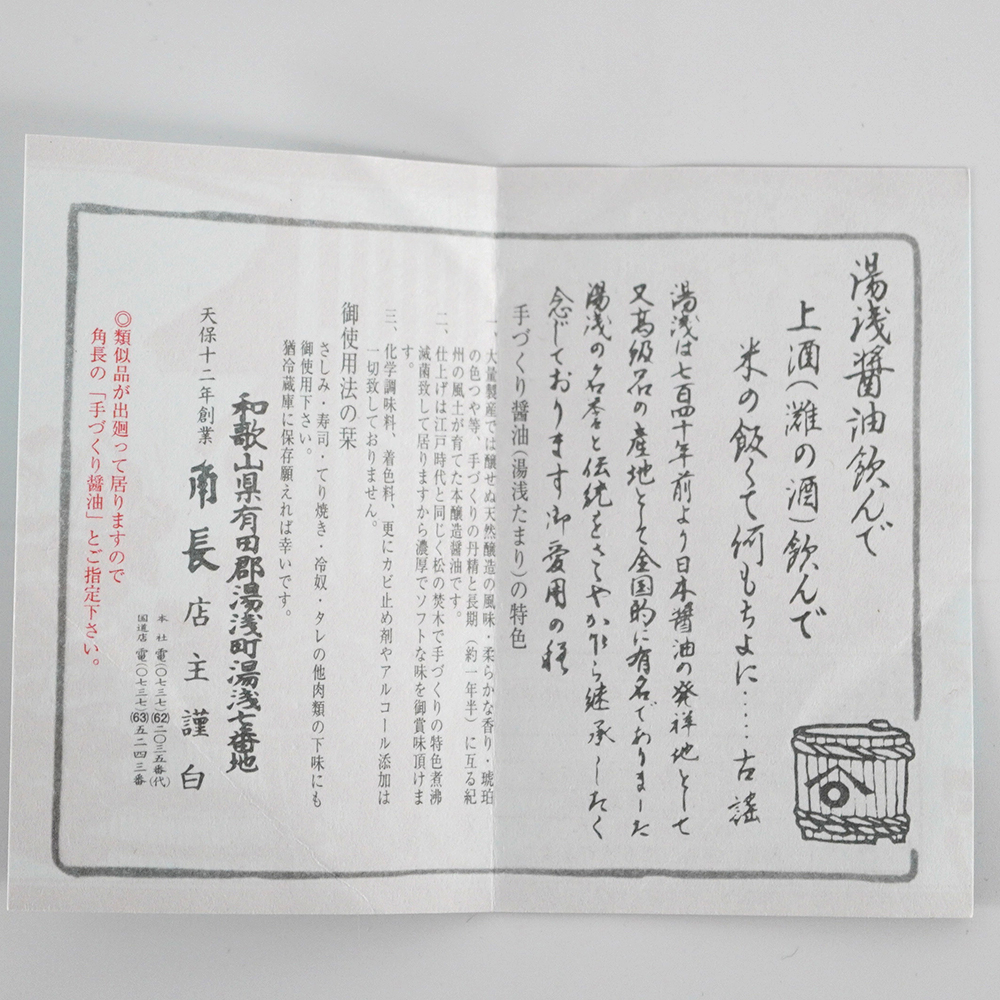 湯浅醤油飲んで
上酒(灘の酒)飲んで
米の飯くて何もちよに……古謡
湯浅は七百四十年前より日本醤油の発祥地として
又高級品の産地として全国的に有名でありました
湯浅の名香と伝統をさゝやか乍ら継承したく
念じております御愛用の程
手づくり醤油(湯浅たまり)の特色
一、大量製産では醸せぬ天然醸造の風味・柔らかな香り・琥珀
の色つや等、手づくりの丹精と長期(約一年半)に亙る紀
州の風土が育てた本醸造醤油です。
二、仕上げは江戸時代と同じく松の焚木で手づくりの特色煮沸
滅菌致して居りますから濃厚でソフトな味を御賞味頂けま
す。
三、化学調味料、着色料、更にカビ止め剤やアルコール添加は
一切致しておりません。
御使用法の栞
さしみ・寿司・てり焼き・冷奴・タレの他肉類の下味にも
御使用下さい。
猶冷蔵庫に保存願えれば幸いです。
和歌山県有田郡湯浅町湯浅七番地
天保十二年創業 角長 店主謹白
本社 電(〇七三七)(62)二〇三五番(代)
国道店 電(〇七三七)(63)五二四三番
◎類似品が出廻って居りますので
角長の「手づくり醤油」とご指定下さい。